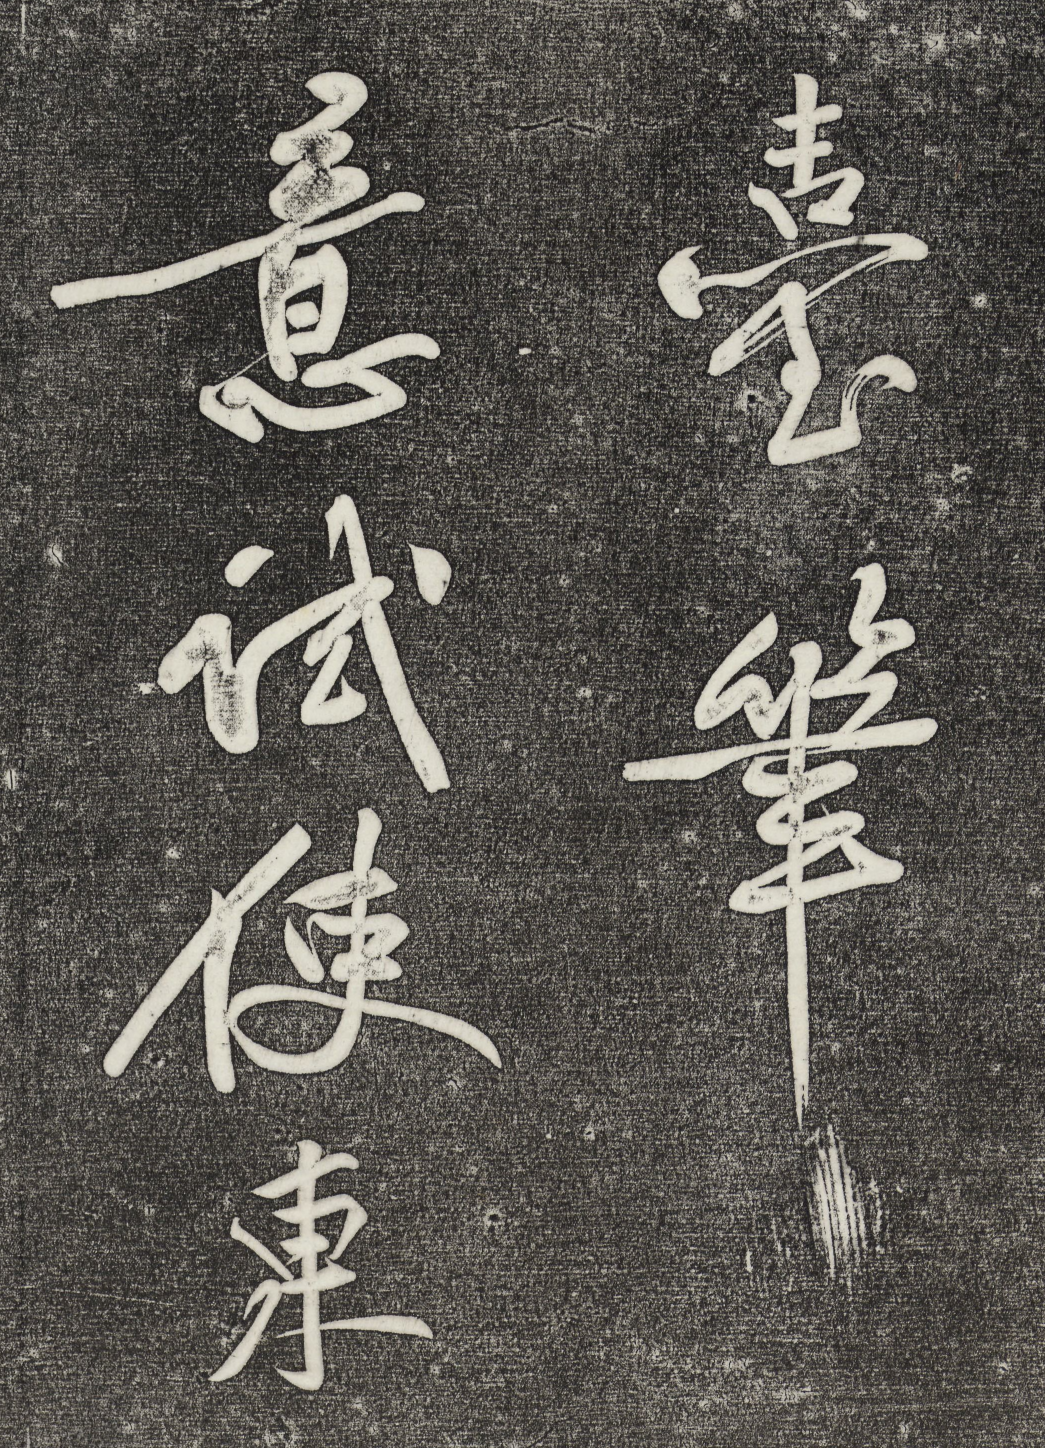 臺筆
意試使東